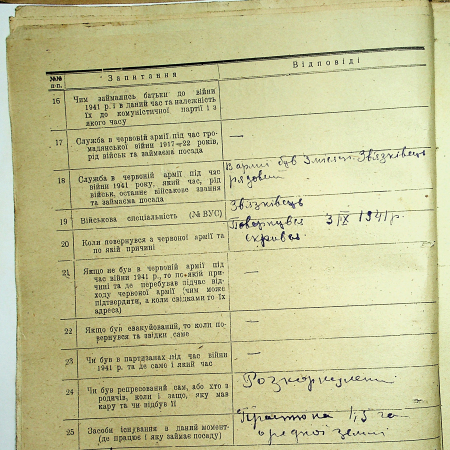 №№ п-п.
Запитання
Відповіді
16
Чим займались батьки до війни
1941 р. і в даний час та належність
їх до комуністичної партії і з
якого часу
17
Служба в червоній армії під час гро-
мадянської війни 1917—22 років,
рід військ та займаєма посада
—
18
Служба в червоній армії під час
війни 1941 року, який час, рід
військ, останнє військове звання
та займаєма посада
В армії був 3 місяці. Звязківець
рядовий
19
Військова спеціальність (№ ВУС)
Звязківець
20
Коли повернувся з червоної армії та
по якій причині
Повернувся 3/IX 1941 р.
21
Якщо не був в червоній армії під
час війни 1941 р., то по якій при-
чині та де перебував підчас від-
ходу червоної армії (чим може
підтвердити, а коли свідками то їх
адреса)
—
22
Якщо був евакуйований, то коли по-
вернувся та звідки саме
—
23
Чи був в партизанах під час війни
1941 р. та де само і який час
—
24
Чи був репресований сам, або хто з
родичів, коли і защо, яку мав
кару та чи відбув її
25
Засоби існування в даний момент-
(де працює і яку займає посаду)
1,5 га
орендної землі